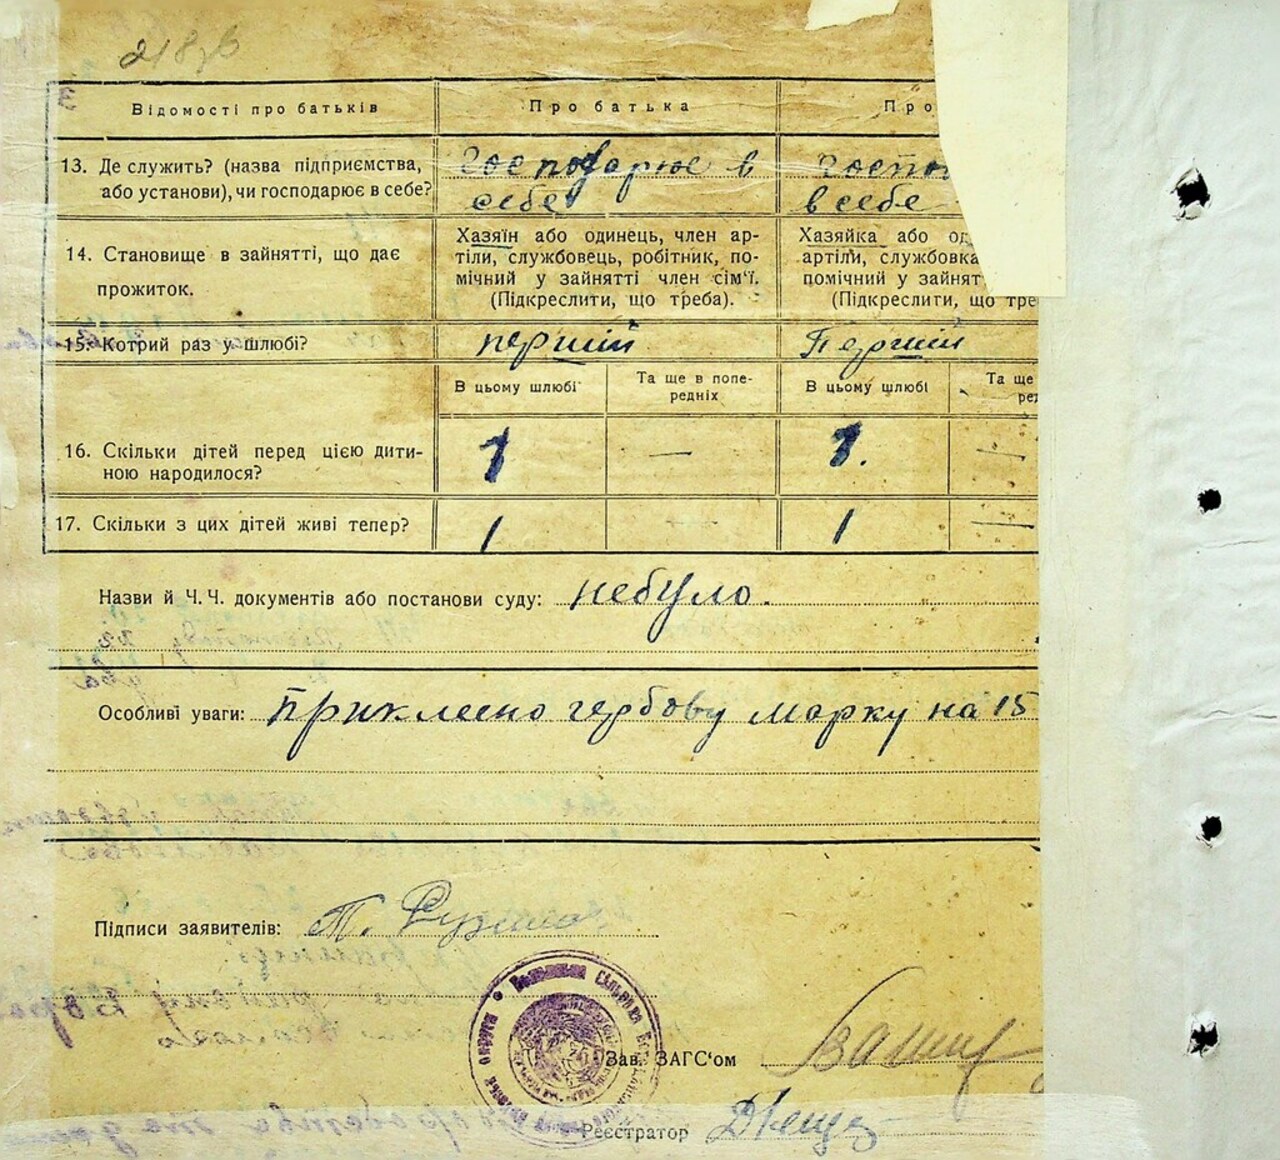 Відомості про батьків
Про батька
Про
13. Де служить? (назва підприємства, або установи), чи господарює в себе?
господарює в
себе
в себе
14. Становище в зайнятті, що дає прожиток.
Хазяїн або одинець, член ар-
тіли, службовець, робітник, по-
мічний у зайнятті член сім'ї.
(Підкреслити, що треба).
Хазяйка або
артіли, службовка
помічний у
(Підкреслити, що
15. Котрий раз у шлюбі?
перший
Перший
В цьому шлюбі
Та ще в попе-
редніх
В цьому шлюбі
Та ще
16. Скільки дітей перед цією дити-
ною народилося?
1
—
1.
—
17. Скільки з цих дітей живі тепер?
1
—
1
—
Назви й Ч. Ч. документів або постанови суду: небуло.
Особливі уваги: Приклеєно гербову марку на 15
Підписи заявителів: Т.
Зав. ЗАГС'ом
Реєстратор